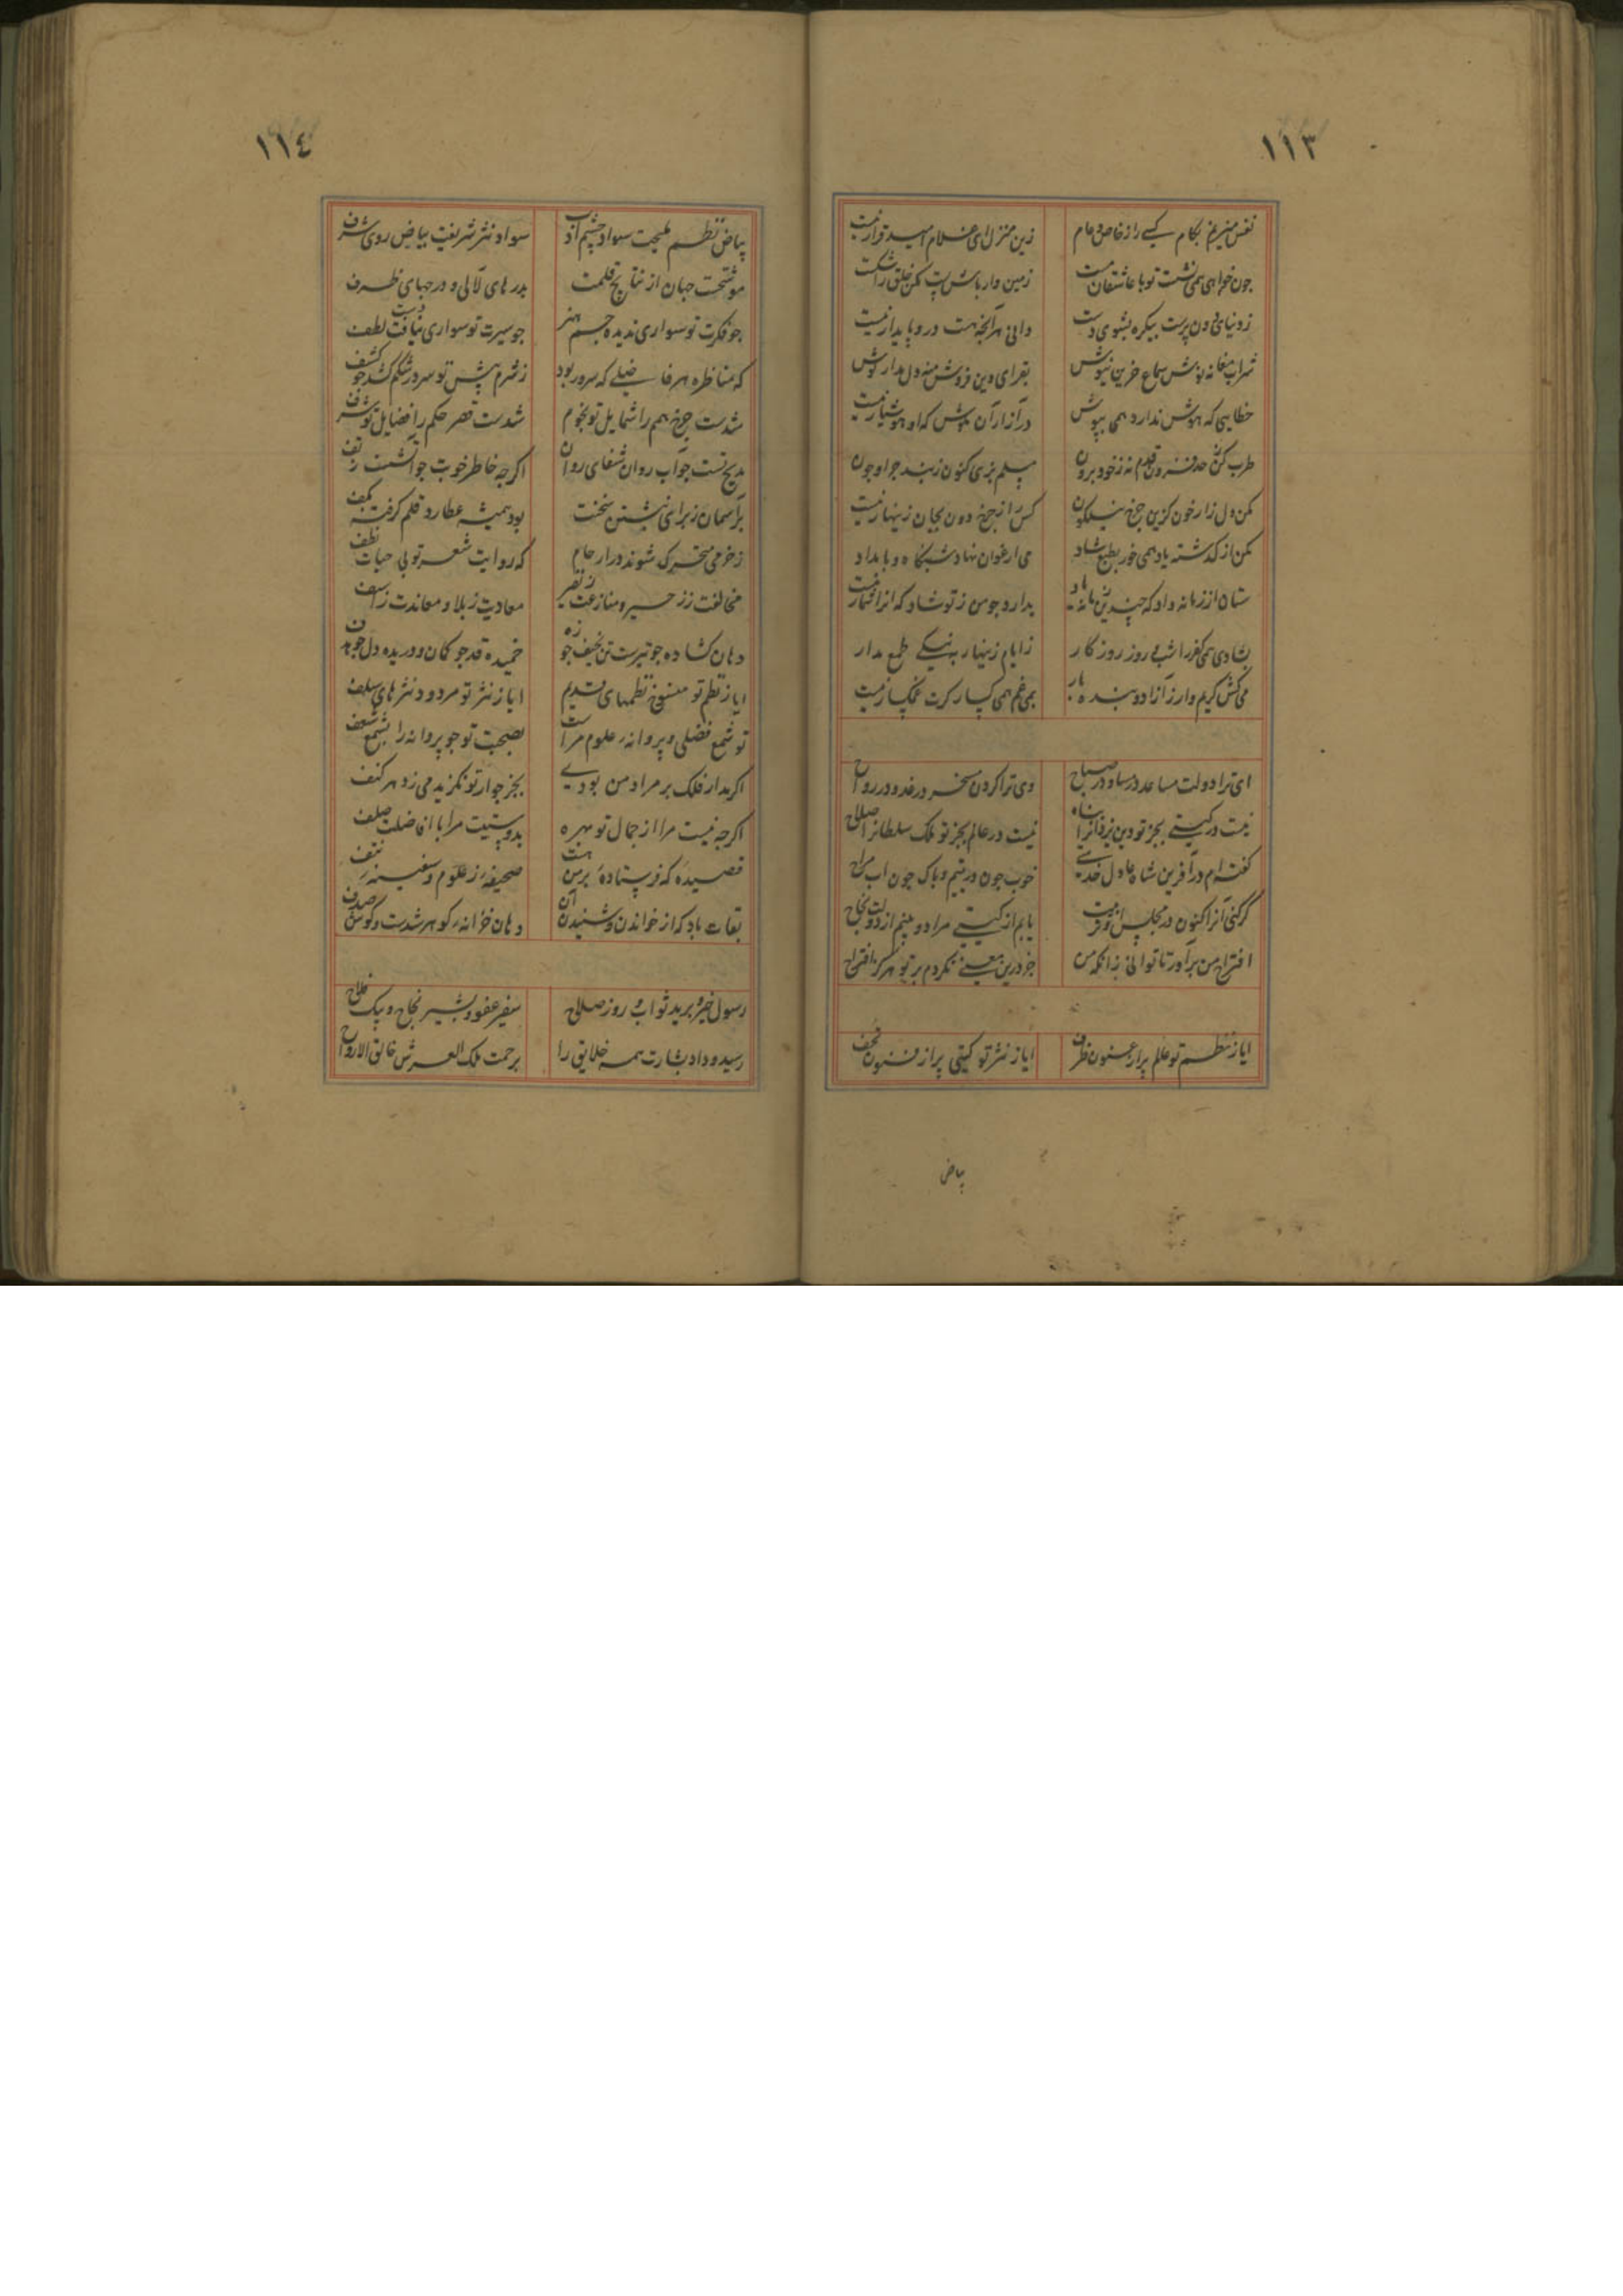 ١١٣
نفس مزن بکام کسی را ز خاص و عام زین منزل ای غلام امید قرار نیست
جون خواهی نشست تو با عاشقان مست زمین وار باش پست مکن خلق را شکست
ز دنیای دون پرست بیکره بشوی دست دانی هر آنجه هست درو پایدار نیست
شراب مغانه نوش سماع حزین نیوش بقرای دین فروش منه دل مدار کوش
خطایی که هوش ندارد همی بپوش در آزار آن مکوش که او هوشیار نیست
طرب کن قدم نه ز خود برون کنون زبند جرا و جون
مکن دل زار خون کزین جرخ نیلکون کس را ز جرخ دون بجان زینهار نیست
مکن از کذشته یاد همی خور بطبع شاد می ارغوان نهاد شبنکاه و بامداد
ستان از زمانه داد که جندین بدارد جو من ز تو شاد که انرا شمار نیست
بشادی همی کذرا شب و روز روزکار ز ایام زینهار به نیکی طمع مدار
می کش کریم وار ز آزاد و بنده بار بمی غم همی کسار کرت غمکسار نیست
ای ترا دولت مساعد در مسا و در صباح وی ترا کردون مسخر در غدو و در رواح
نیست در کیتی بجز تو دین یزدانرا پناه نیست در عالم بجز تو ملک سلطانرا صلاح
کفته ام در آفرین شاه عادل خوب جون در یتیم و پاک جون آب
کر کنی آنرا کنون در مجلس یابم از کیتی مراد و بینم از دولت نجاح
اقتراح من برآور تا توانی زانکه من جز درین معنی نکردم بر تو هرکز اقتراح
ایا ز نظم تو عالم پر از عیون ظرف ایا ز نثر تو کیتی پر از فنون تحف
بیاض
١١٤
بیاض نظم ملیحت سواد جشم ادب سواد نثر شریفت بیاض روی شرف
موشحت جهان از نتایج قلمت بدرهای لآلی و درجهای ظرف
جو فکرت تو سواری ندیده جشم هنر جو سیرت تو سواری نیافت دست لطف
که مناظره هر فاضلی که سرور بود ز شرم پیش تو سر در شکم کشد جو کشف
شدست جرخ همم را شمایل تو نجوم شدست قصر حکم را فضایل تو شرف
مدیح تست جو آب روان شفای روان اکرجه خاطر خوبت جو آتشست ز تف
بر آسمان ز برای نبشتن سخنت بود همیشه عطارد قلم کرفته بکف
ز خرمی متحرک شوند در ارحام که روایت شعر تو بی حیات نطف
مخالفت ز زحیر و منازعت ز نفیر معادیت ز بلا و معاندت ز اسف
دهان کشاده جو تیرست تن نحیف جو زه خمیده قد جو کمان و دریده دل جو هدف
ایا ز نظم تو منسوخ نظمهای قدیم ایا ز نثر تو مردود نثرهای سلف
تو شمع فضلی و پروانهٔ علوم مراست بصحبت تو جو پروانه را بشمع شعف
اکر مدار فلک بر مراد من بودی بجز جوار تو نکزیدمی ز هر کنف
اکرجه نیست مرا از جمال تو بهره بدوستیت مرا با افاضلست صلف
قصیدهٔ که فرستادهٔ بر من هست صحیفهٔ ز علوم و سفینهٔ ز نتف
بقات باد که از خواندن و شنیدن آن دهان خزانهٔ کوهر شدست و کوش صدف
رسول خیر و برید ثواب و روز صلاح سفیر عفو و بشیر نجاح و پیک فلاح
رسید و داد بشارت همه خلایق را برحمت ملک العرش خالق الارواح